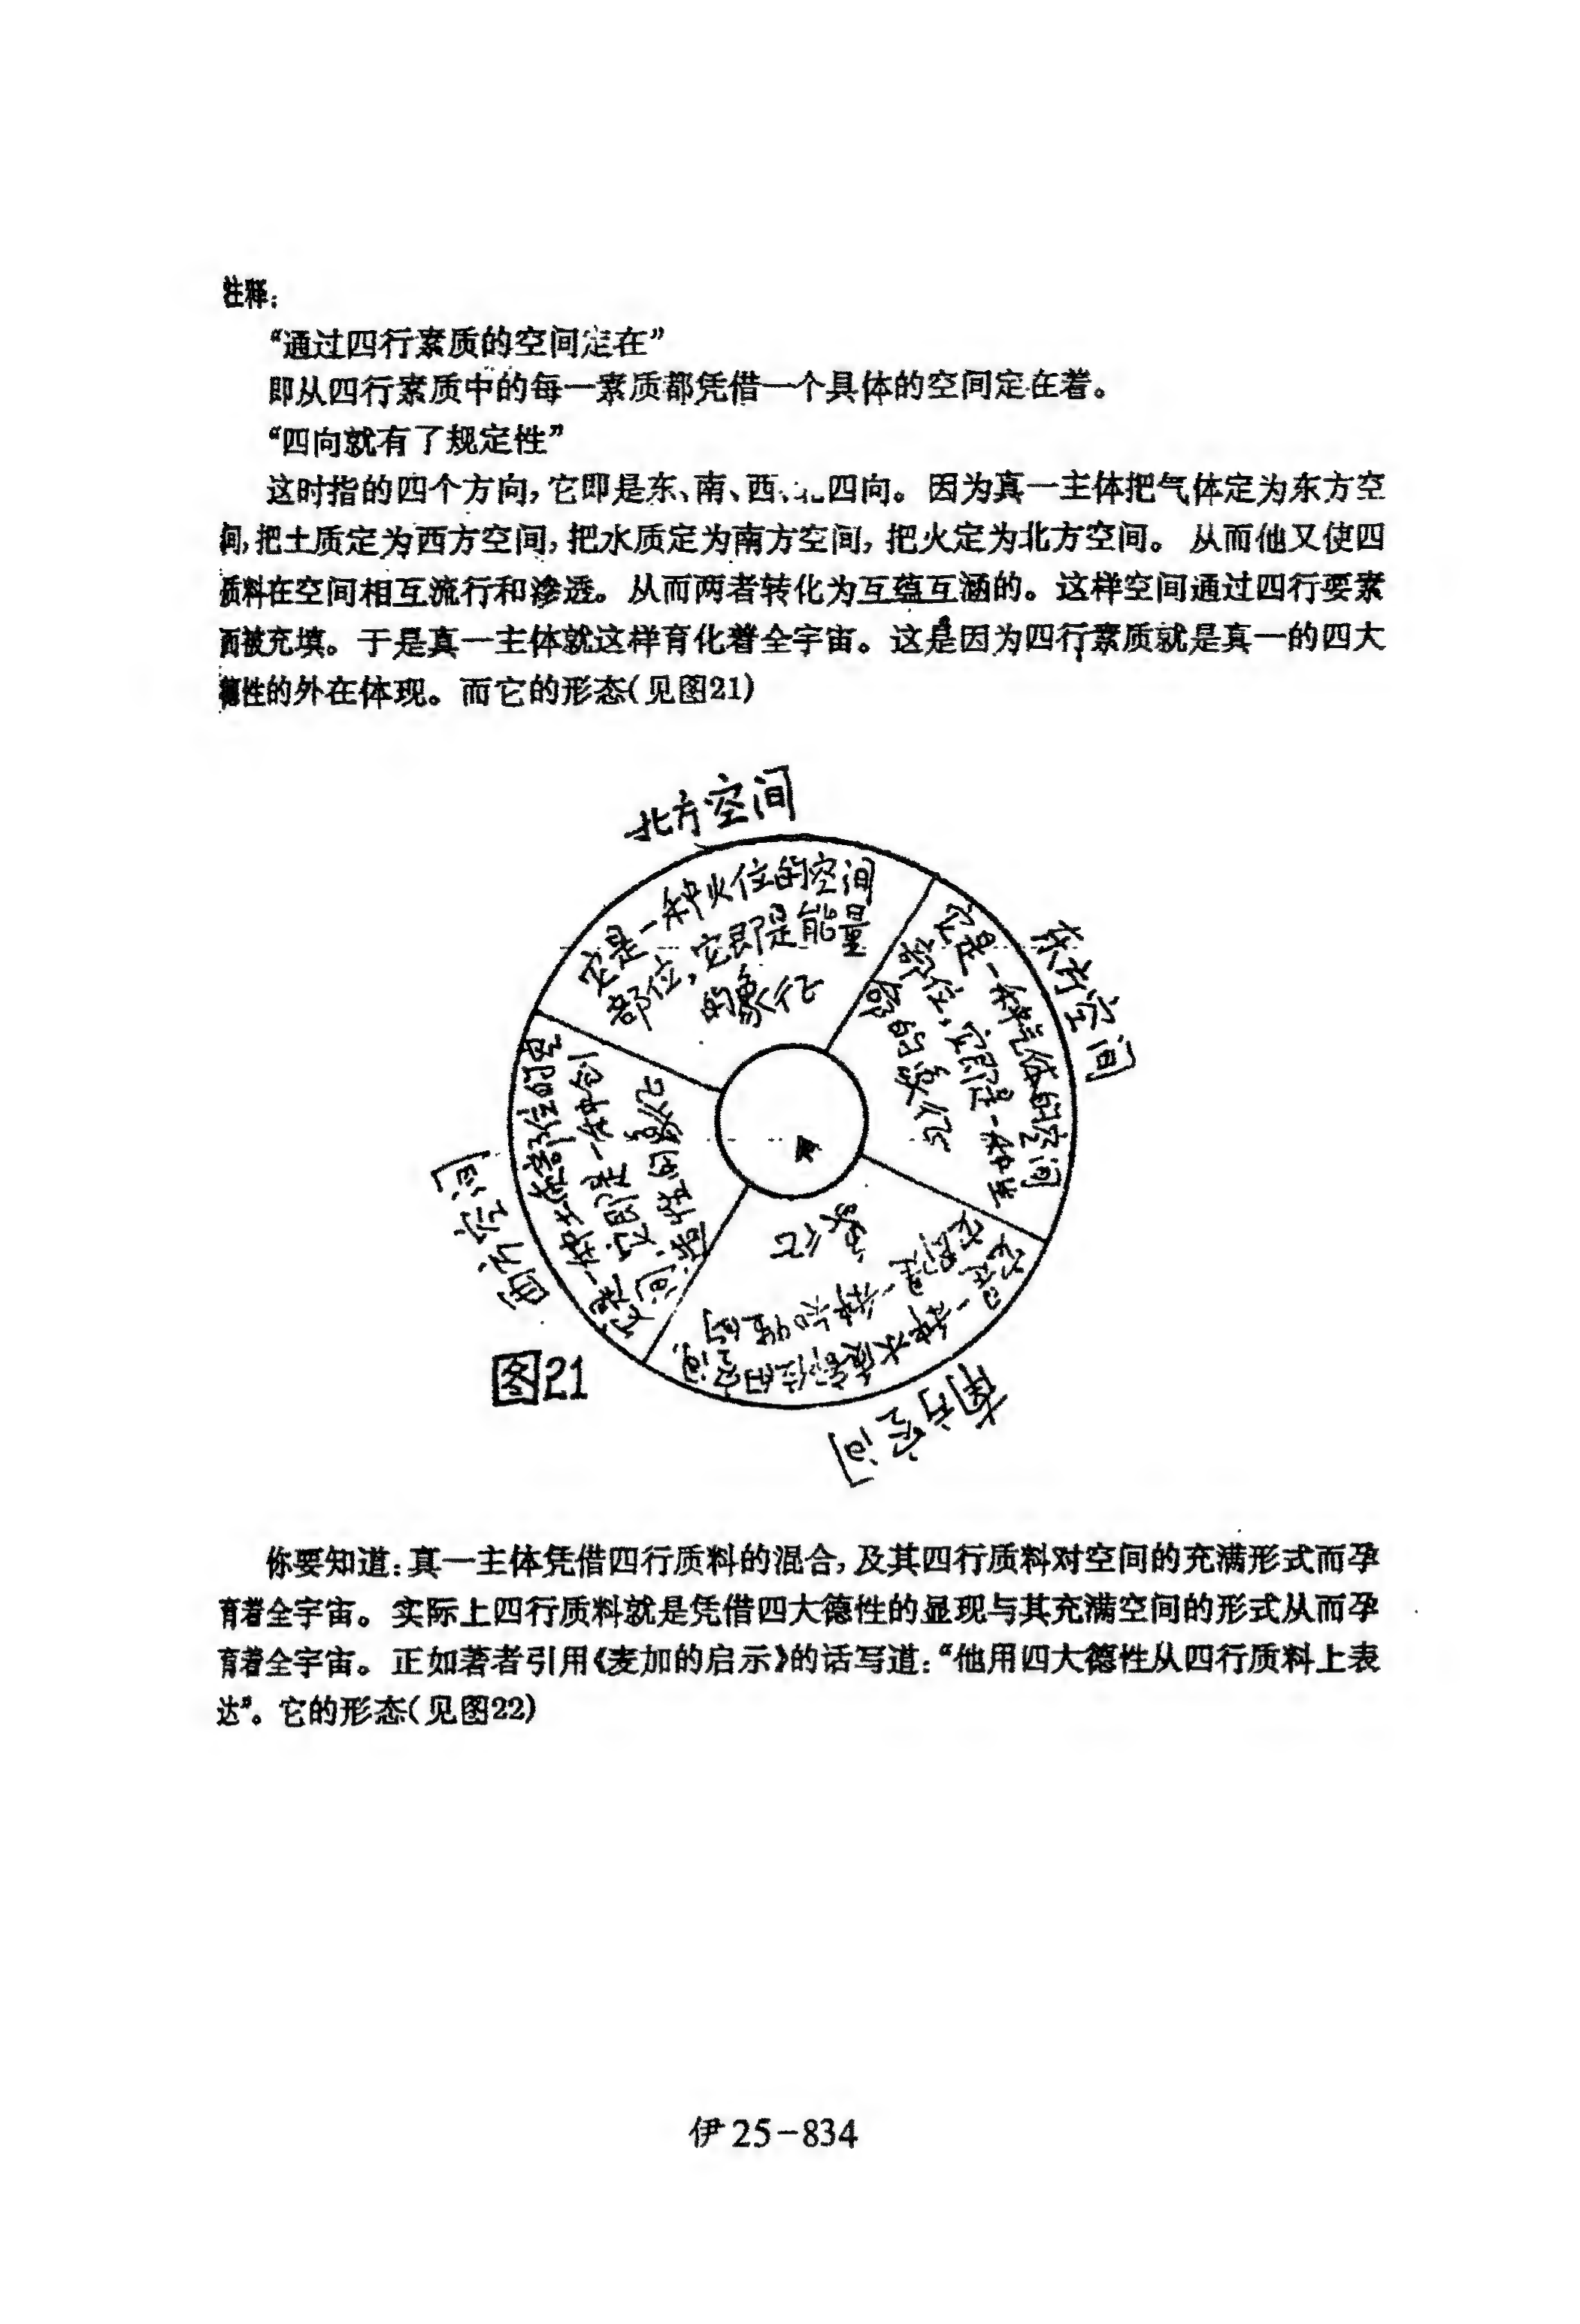 注释：
“通过四行素质的空间定在”
即从四行素质中的每一素质都凭借一个具体的空间定在着。
“四向就有了规定性”
这时指的四个方向，它即是东、南、西、北四向。因为真一主体把气体定为东方空
间，把土质定为西方空间，把水质定为南方空间，把火定为北方空间。从而他又使四
质料在空间相互流行和渗透。从而两者转化为互蕴互涵的。这样空间通过四行要素
而被充填。于是真一主体就这样育化着全宇宙。这是因为四行素质就是真一的四大
德性的外在体现。而它的形态（见图21）
北方空间
它是一种火位的空间
部位，它即是能量
的象征
东方空间
它是一种气体的空间
部位，它即是一种生
命的象征
南方空间
它是一种水质部位的空间，
它即是一种知性的
象征
西方空间
它是一种土质部位的空
间，它即是一种创
的象征
图21
你要知道：真一主体凭借四行质料的混合，及其四行质料对空间的充满形式而孕
育着全宇宙。实际上四行质料就是凭借四大德性的显现与其充满空间的形式从而孕
育着全宇宙。正如著者引用《麦加的启示》的话写道：“他用四大德性从四行质料上表
达”。它的形态（见图22）
伊25-834